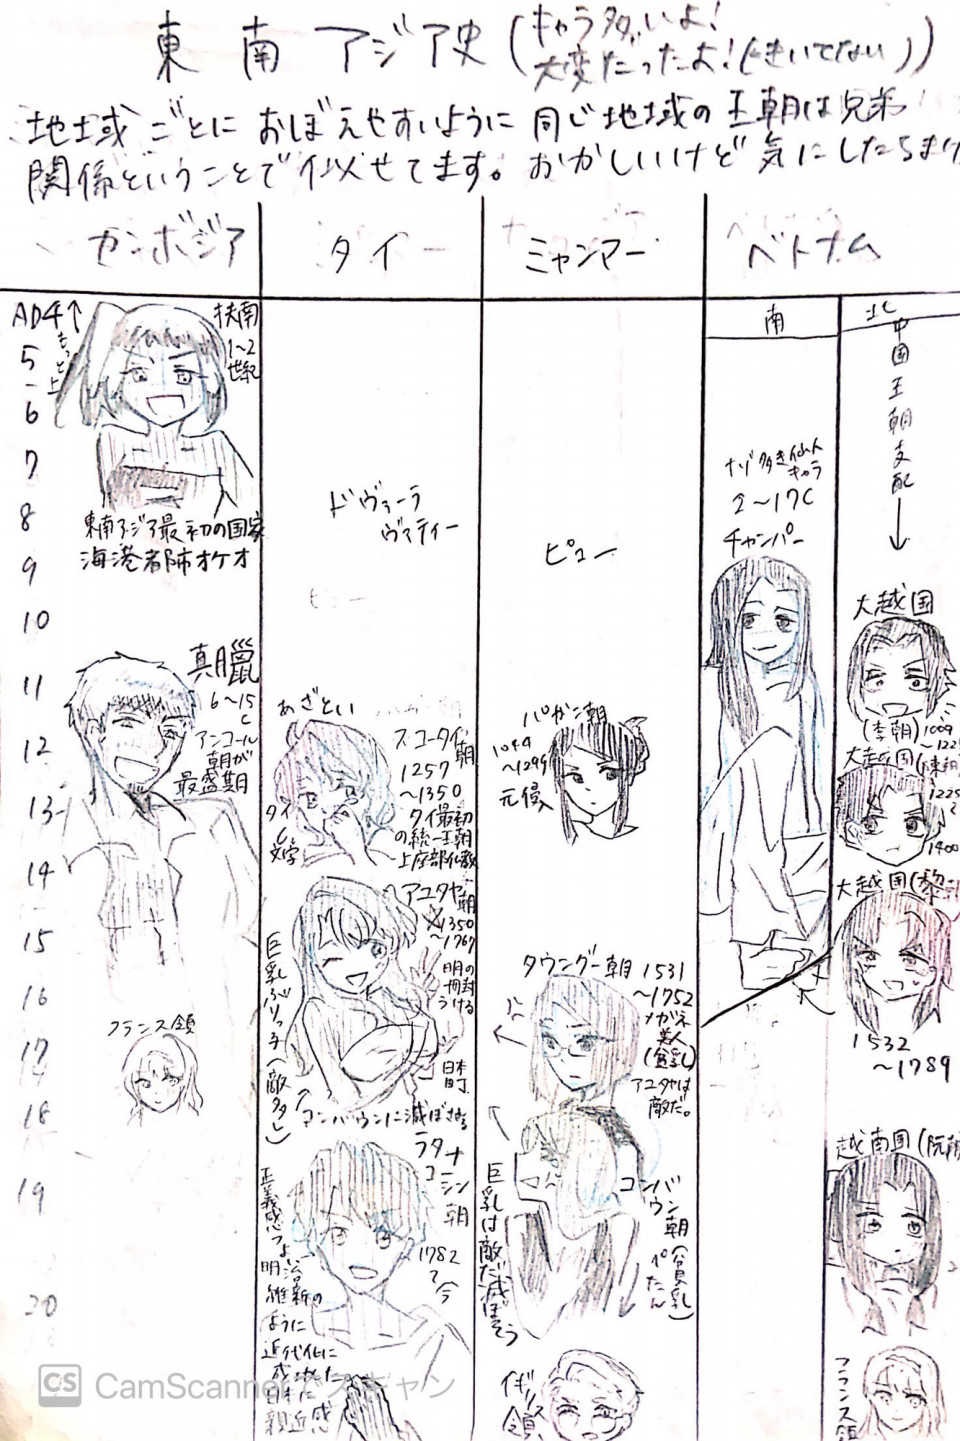 東南アジア史(キャラ多いよ!
大変だったよ!(きいてない))
地域ごとにおぼえやすいように同じ地域の王朝は兄弟
関係ということで似せてます。おかしいけど気にしたらまけ
カンボジア
タイ
ミャンマー
ベトナム
南
北
AD4
5
6
7
8
9
10
11
12
13
14
15
16
17
18
19
20
もっと上
扶南
1~2
世紀
東南アジア最初の国家
海港都市オケオ
真臘
6~15
C
アンコール
朝が
最盛期
フランス領
ドヴァーラ
ヴァティー
あざとい
スコータイ朝
1257
~1350
タイ最初
の統一王朝
上座部仏教
タイ
文字
アユタヤ朝
1350
~1767
明の
冊封
うける
日本
町
巨乳ぶりっ子(敵多し)
コンバウンに滅ぼされる
ラタナ
コーシン
朝
1782
~今
正義感つよ
明治
維新の
ように
近代化に
成功した
日本に
親近感
ピュー
パガン朝
1044
~1299
元侵入
タウングー朝
1531
~1752
メガネ
美人
(貧乳)
アユタヤは
敵だ。
コンバ
ウン
朝(貧乳)
ぺたん
巨乳は敵だ滅ぼそう
イギリス
領
ナゾ多き仙人
キャラ
2~17C
チャンパー
中国王朝支配
大越国
(李朝)
1009
大越国(陳朝)
1225
1400
大越国(黎
1532
~1789
越南国(阮朝
フランス領
CS CamScannerでスキャン